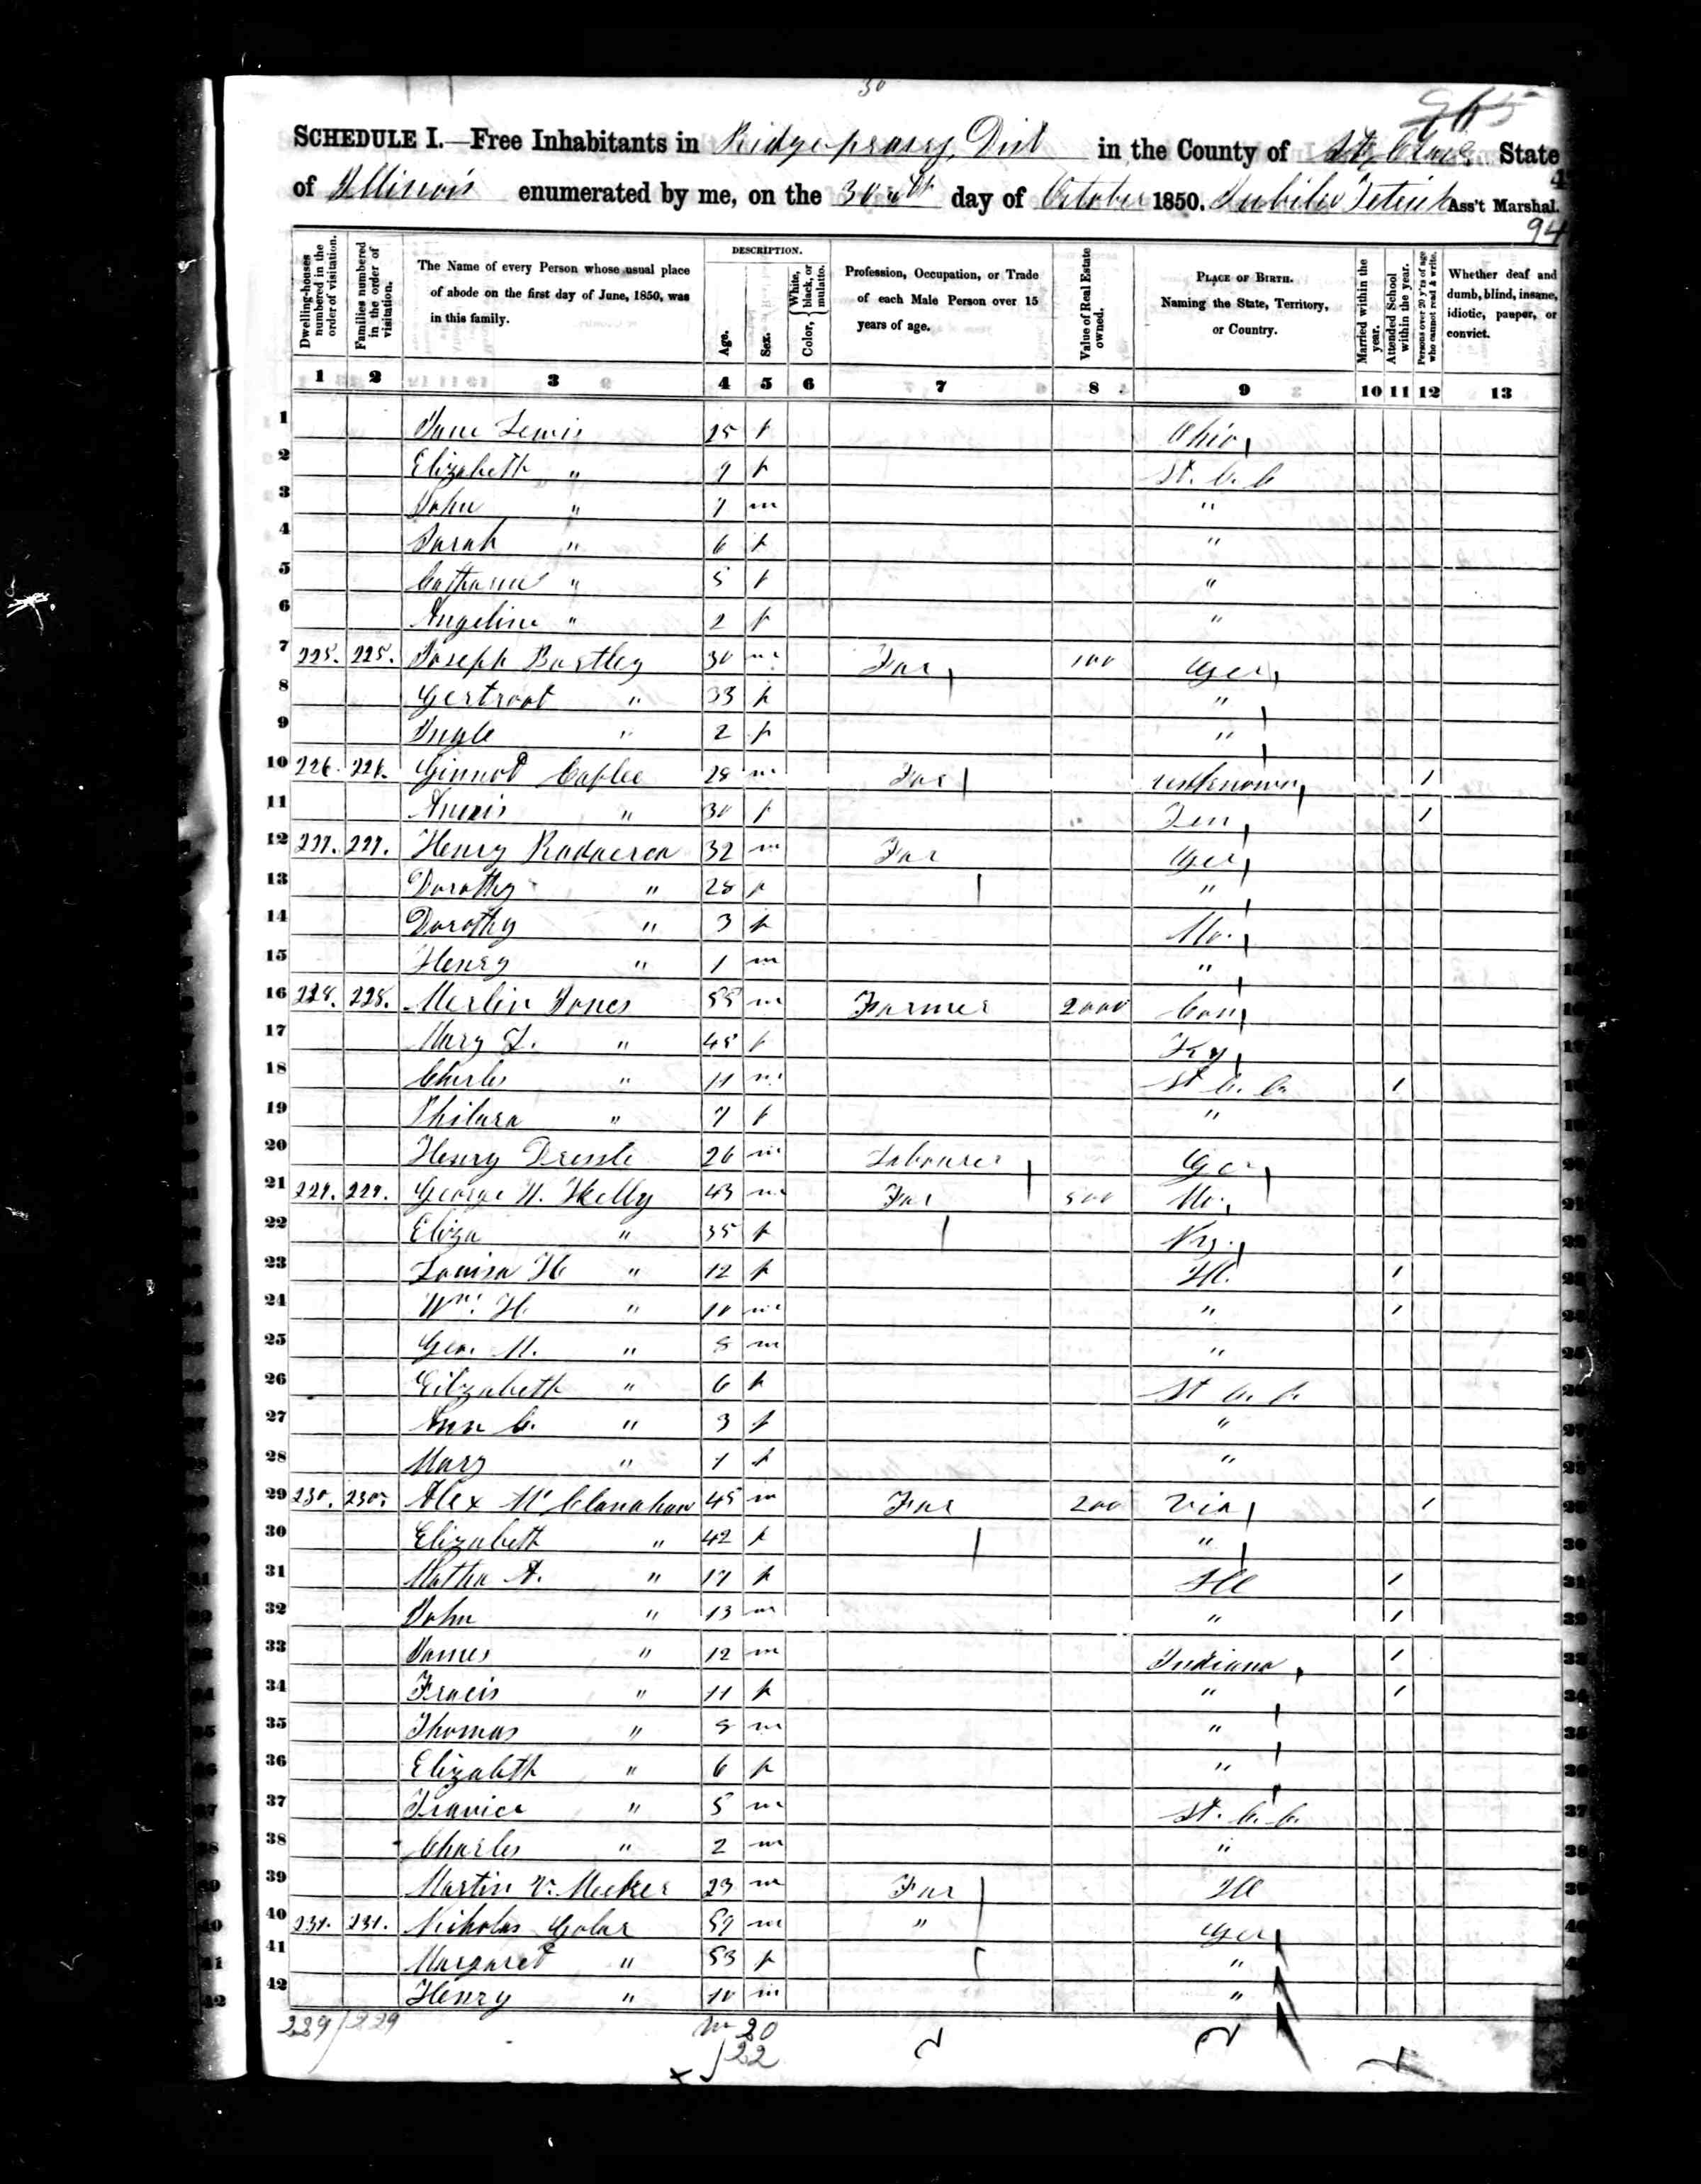 30
965
SCHEDULE I.—Free Inhabitants in Ridgeprary Dist in the County of St, Clair State
of Illinois enumerated by me, on the 30th day of October 1850. Ass't Marshal.
94
Dwelling-houses numbered in the order of visitation.
Families numbered in the order of visitation.
The Name of every Person whose usual place of abode on the first day of June, 1850, was in this family.
DESCRIPTION.
Age.
Sex.
Color, { White, black, or mulatto.
Profession, Occupation, or Trade of each Male Person over 15 years of age.
Value of Real Estate owned.
PLACE OF BIRTH. Naming the State, Territory, or Country.
Married within the year.
Attended School within the year.
Persons over 20 y'rs of age who cannot read & write.
Whether deaf and dumb, blind, insane, idiotic, pauper, or convict.
1 2 3 4 5 6 7 8 9 10 11 12 13
1 Jane Lewis 25 f Ohio
2 Elizabeth " 9 f St. C. C
3 John " 7 m "
4 Sarah " 6 f "
5 Catharine " 5 f "
6 Angeline " 2 f "
7 225. 225. Joseph Bartley 30 m Far 100 Ger
8 Gertroot " 33 f "
9 " 2 f "
10 226. 226. 28 m Far unknown 1
11 " 30 f Ten 1
12 227. 227. Henry 32 m Far Ger
13 Dorothy " 28 f "
14 Dorothy " 3 f Mo.
15 Henry " 1 m "
16 228. 228. Merlin Jones 55 m Farmer 2000 Con
17 Mary L. " 45 f Ky
18 Charles " 11 m St C. C. 1
19 Philura " 7 f "
20 Henry Dressle 26 m Labourer Ger
21 229. 229. George W. Kelly 43 m Far 500 Mo.
22 Eliza " 35 f Ky.
23 Louisa H " 12 f Ill. 1
24 Wm. H " 10 m " 1
25 Geo. M. " 8 m "
26 Eilzabeth " 6 f St C. C.
27 Ann C. " 3 f "
28 Mary " 1 f "
29 230. 230. Alex McClanahan 45 m Far 200 Via 1
30 Elizabeth " 42 f "
31 Matha A. " 17 f Ill 1
32 John " 13 m " 1
33 James " 12 m Indiana 1
34 Fracis " 11 f " 1
35 Thomas " 8 m "
36 Elizabeth " 6 f "
37 " 5 m St. C. C.
38 Charles " 2 m "
39 Martin V. Meeker 23 m Far Ill
40 231. 231. Nicholas Golar 59 m " Ger
41 Margaret " 53 f "
42 Henry " 10 m "
229/229 m 20
f 22